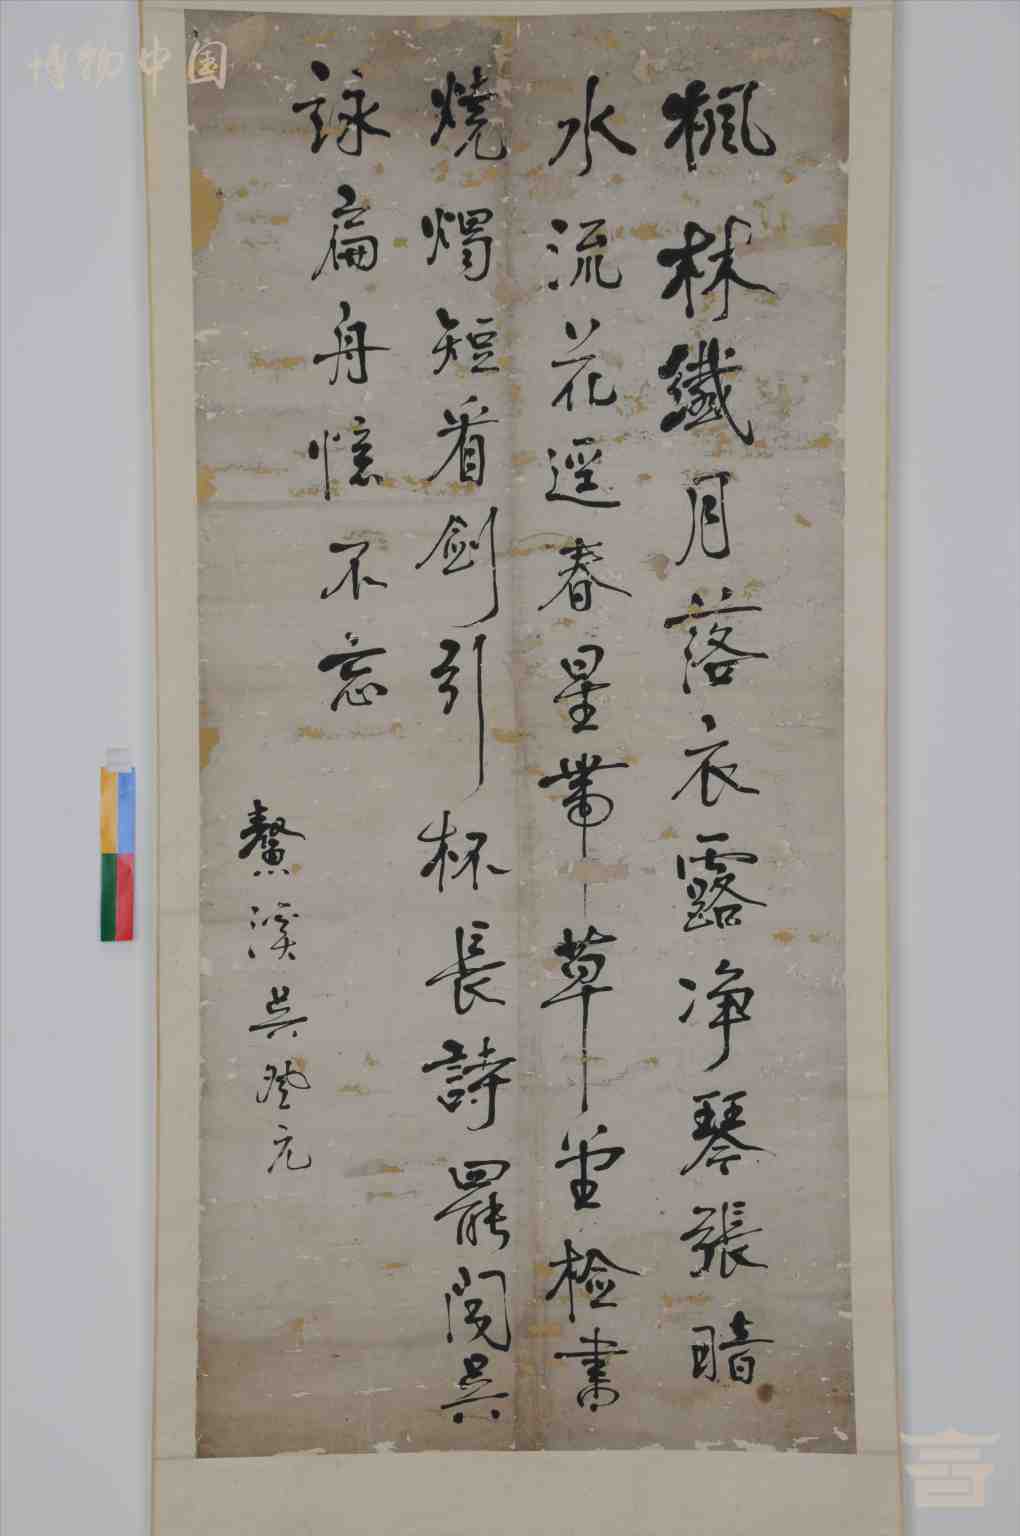 博物中国
楓林纖月落衣露净琴張暗
水流花逕春星帶草堂檢書
燒燭短看劍引杯長詩罷聞吳
詠扁舟憶不忘
鰲溪吳元